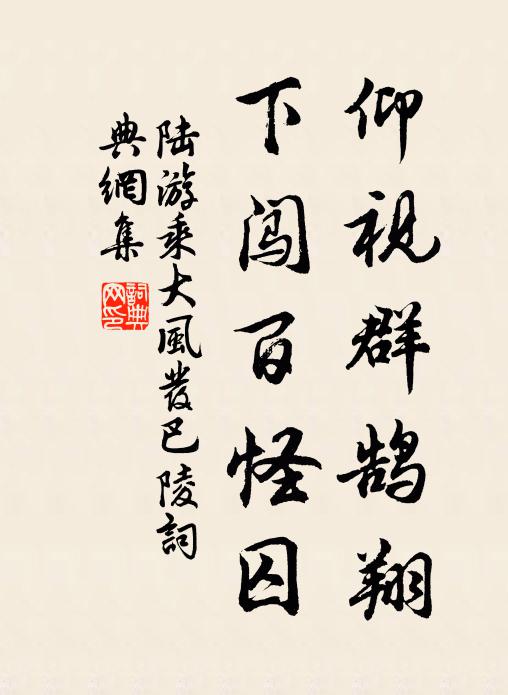 仰視群鹄翔
下闯百怪囚
陆游乘大風發巴陵詞
典網集
詞典网印